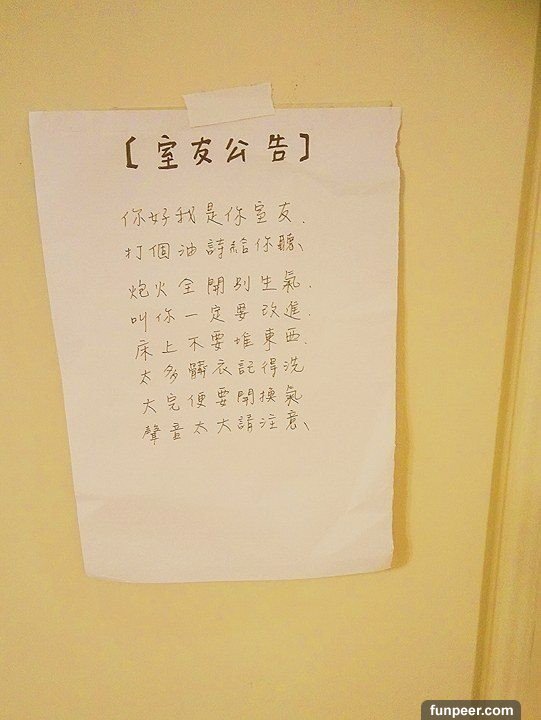 [室友公告]
你好我是你室友.
打個油詩給你聽、
炮火全開別生氣.
叫你一定要改進.
床上不要堆東西、
太多髒衣記得洗
大完便要開換氣
聲音太大請注意、
funpeer.com